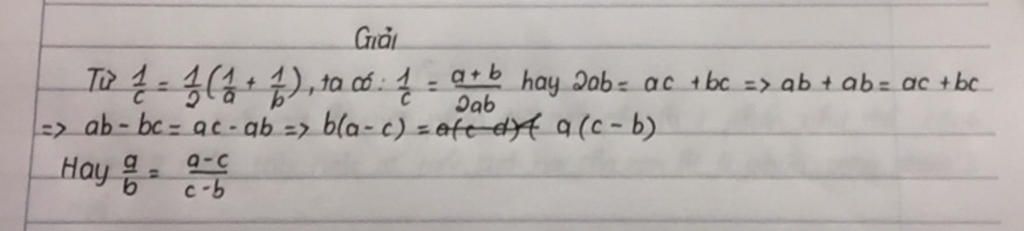 Giải
Từ 1/c = 1/2(1/a + 1/b), ta có: 1/c = a+b/2ab hay 2ab = ac + bc => ab + ab = ac + bc
=> ab - bc = ac - ab => b(a-c) = a(c-b)
Hay a/b = a-c/c-b